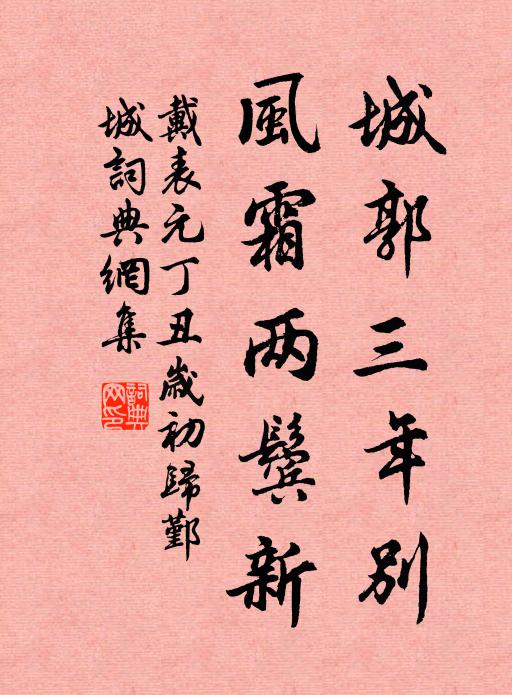 城郭三年別
風霜两鬓新
戴表元丁丑歲初歸鄞
城詞典網集
詞典网印